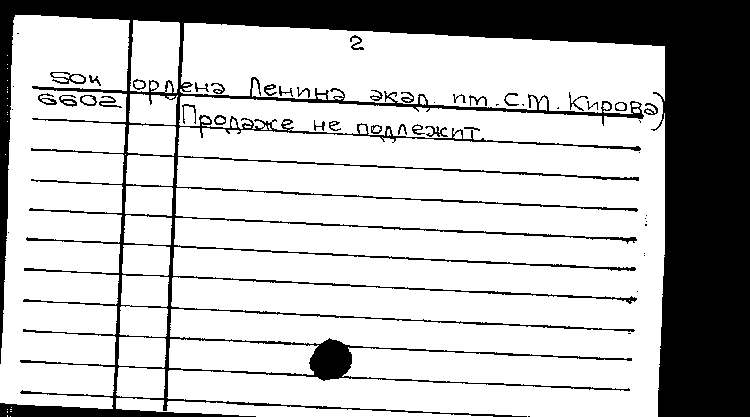 2
50к
6602
ордена Ленина акад. им. С.М. Кирова)
Продаже не подлежит.